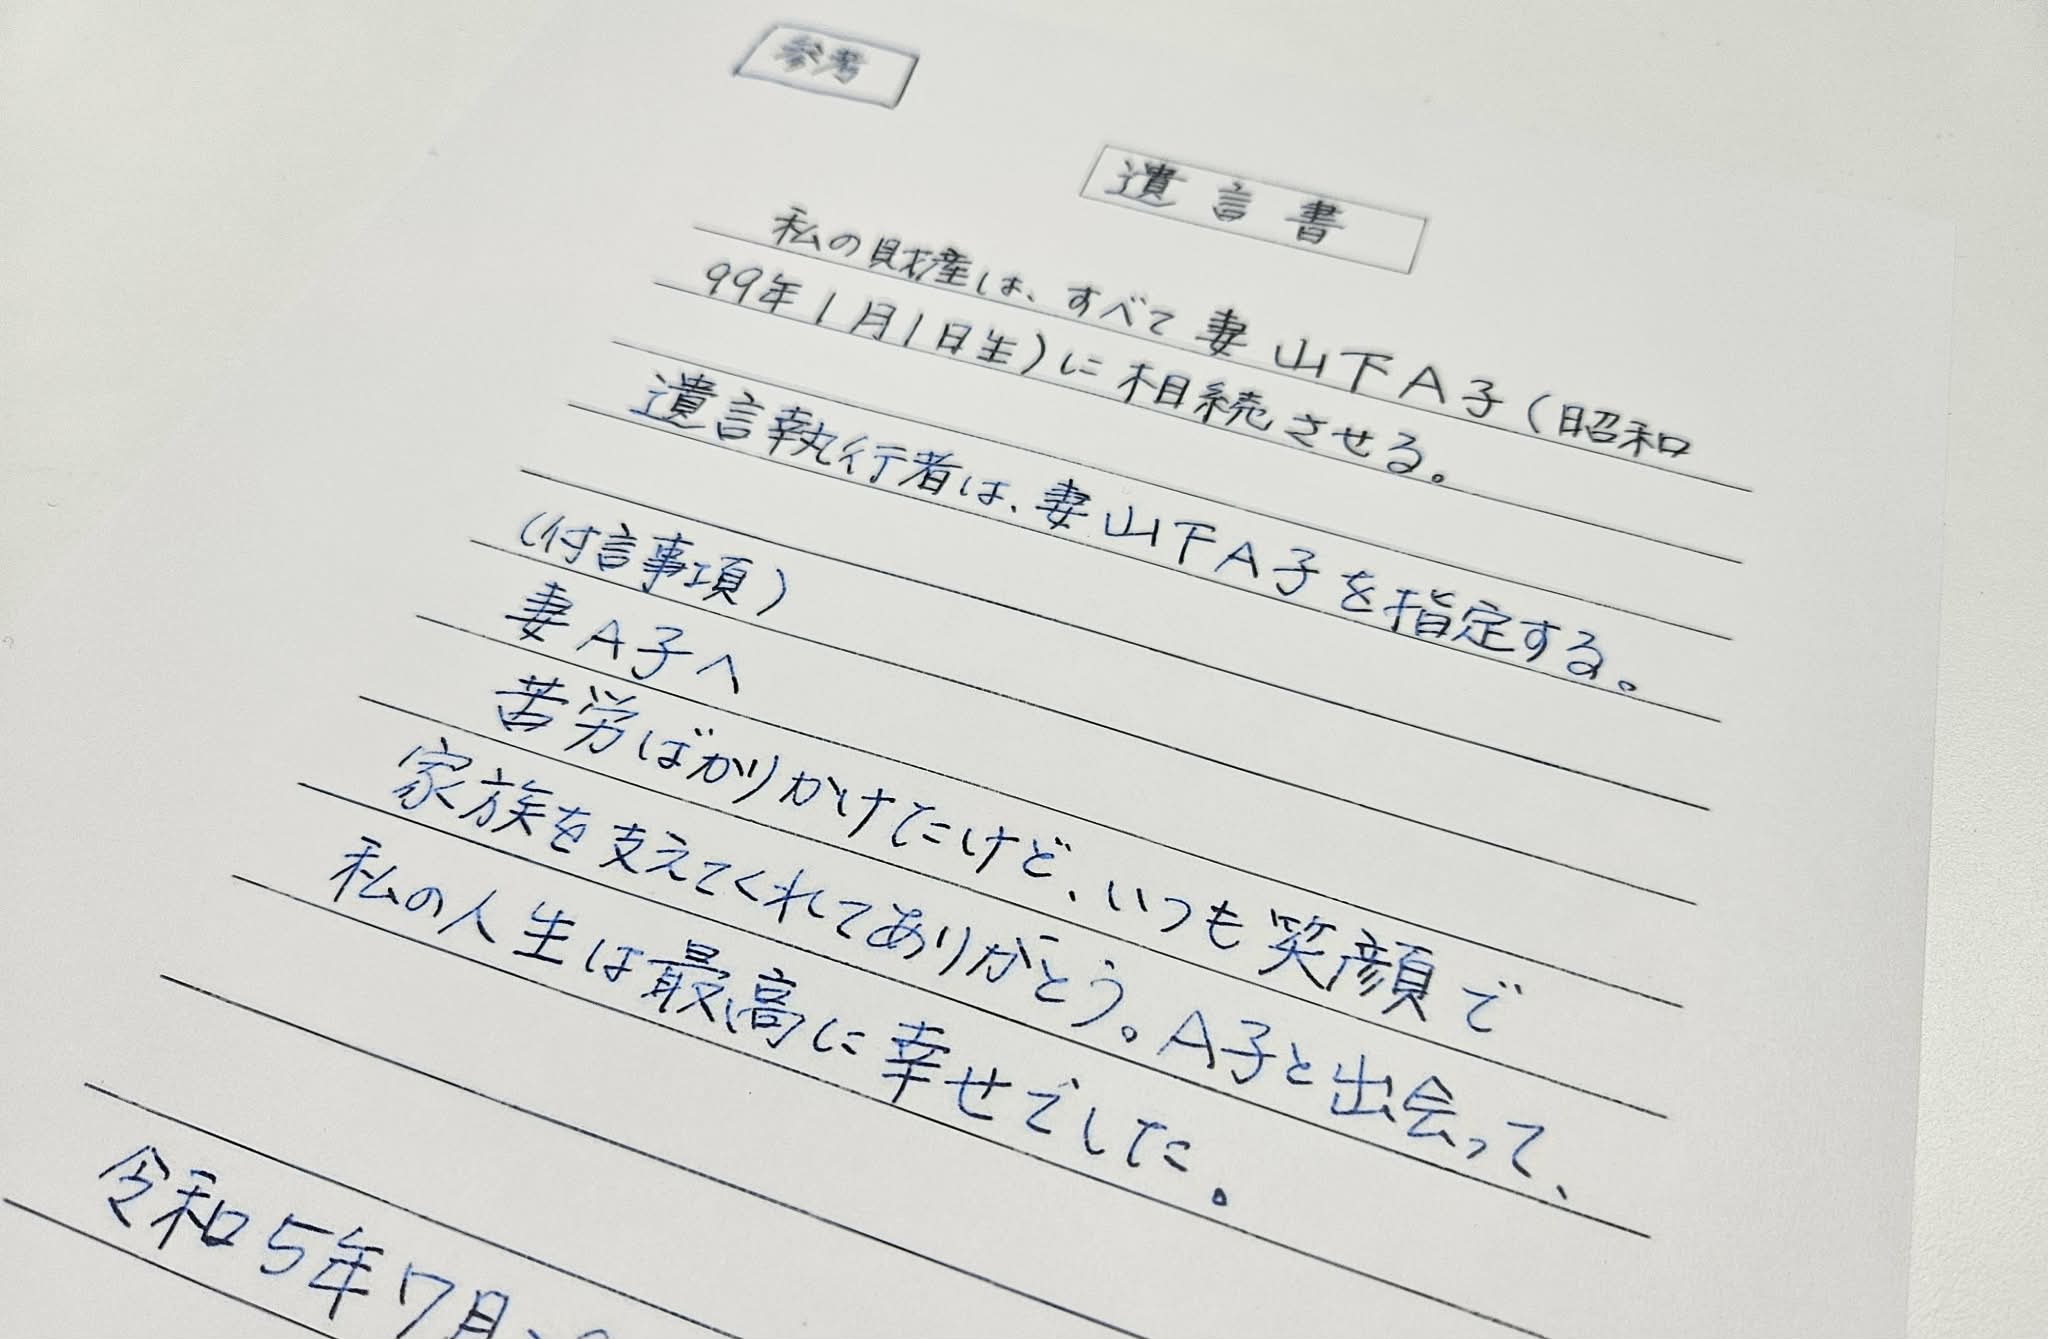 参考
遺言書
私の財産は、すべて妻 山下A子(昭和
99年1月1日生)に相続させる。
遺言執行者は、妻山下A子を指定する。
(付言事項)
妻A子へ
苦労ばかりかけたけど、いつも笑顔で
家族を支えてくれてありがとう。A子と出会って、
私の人生は最高に幸せでした。
令和5年7月